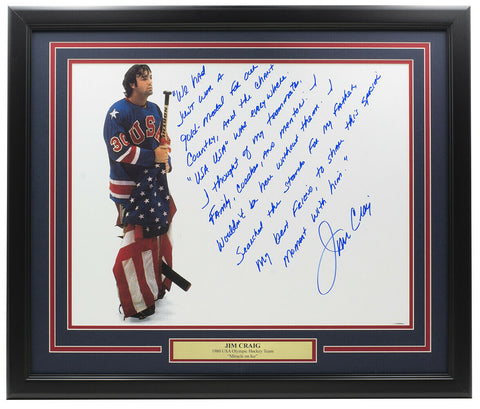 "We had
just won a
gold-medal for our
Country, and the chant
"USA USA" was everywhere.
I thought of my teammates,
Family, coaches, and mentors. I
wouldn't be here without them. I
Searched the stands for my Father,
my best Friend, to share this special
moment with him"
Jim Craig
USA
30
JIM CRAIG
1980 USA Olympic Hockey Team
"Miracle on Ice"